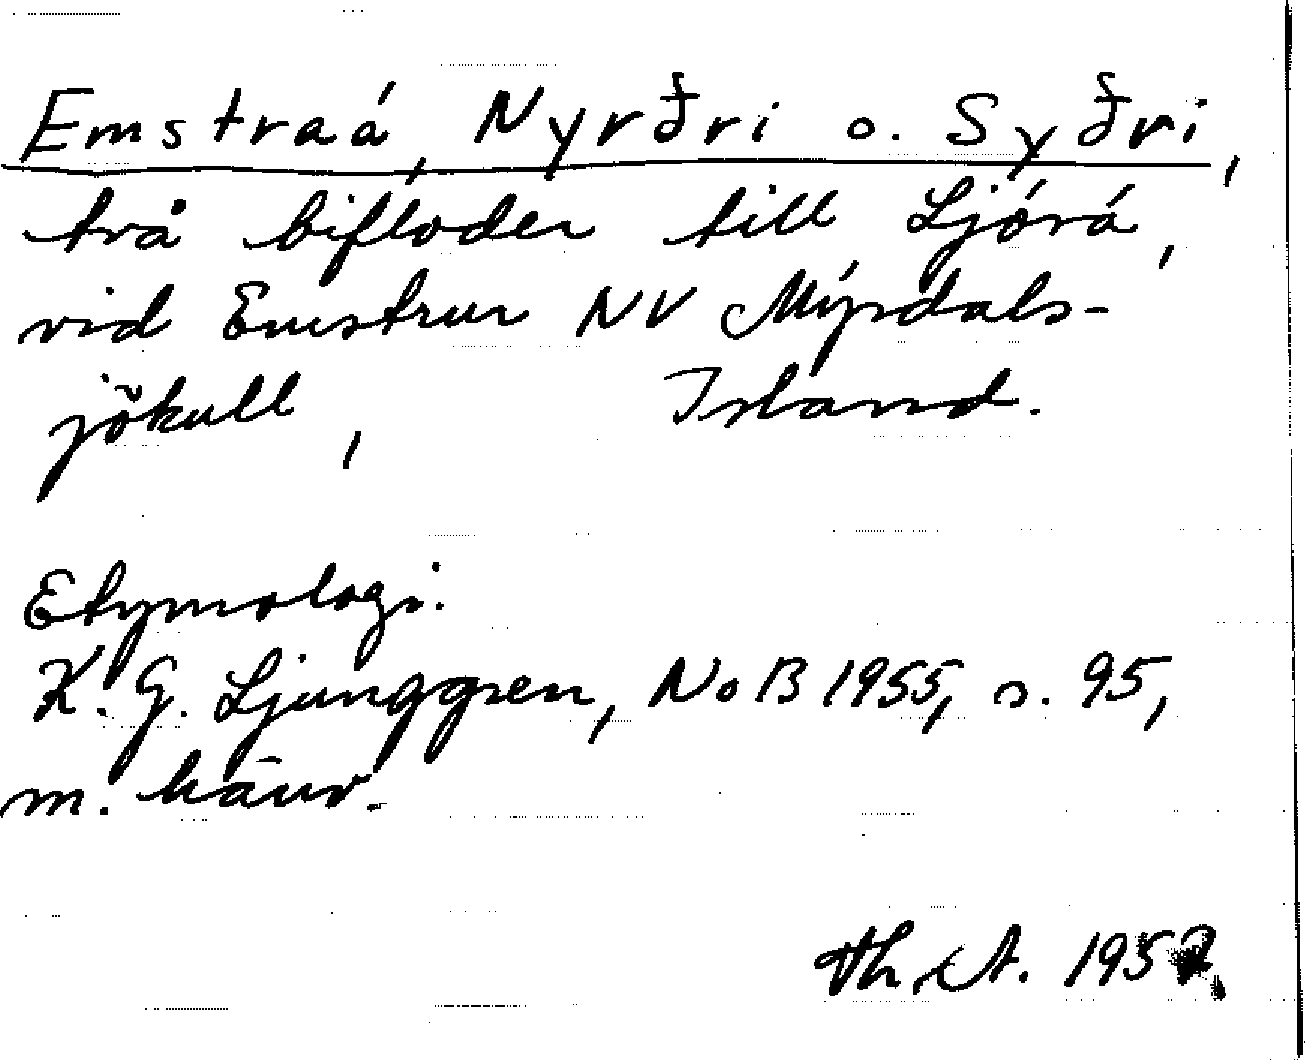 Emstraá, Nyrðri o. Syðri,
två bifloder till Ljórá,
vid Emstrur NV Mýrdals-
jökull, Island.
Etymologi.
K. G. Ljunggren, NoB 1955, s. 95,
m. hänv.
Th. A. 195